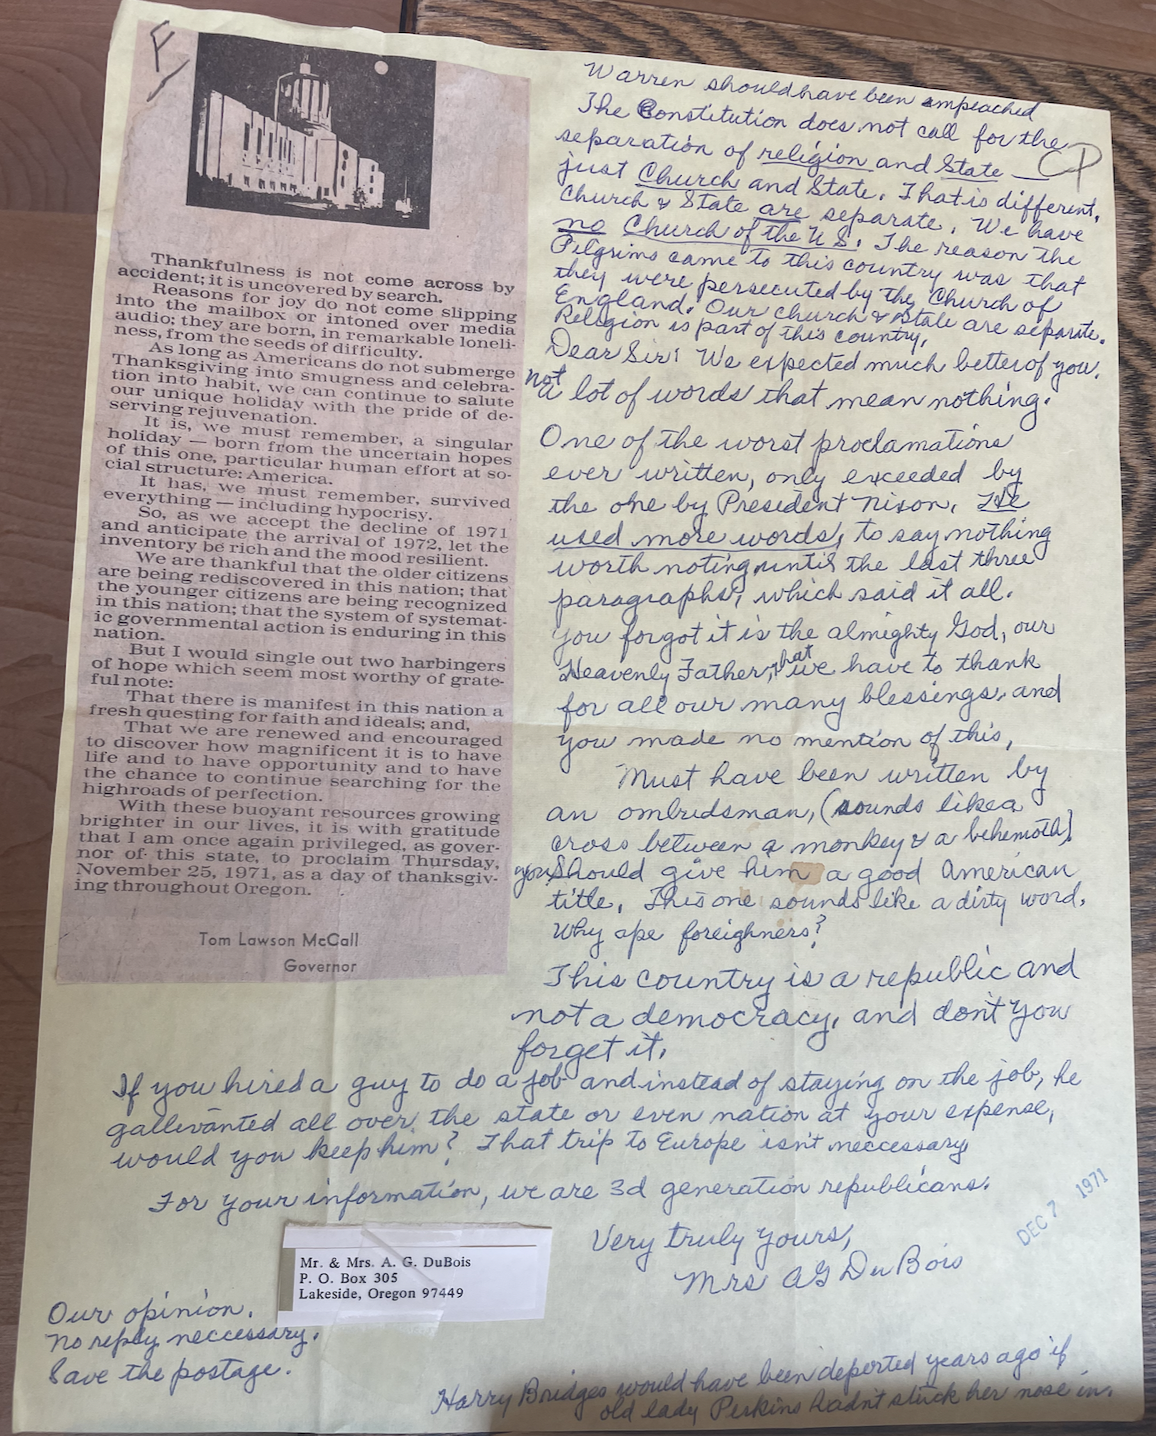 F
Thankfulness is not come across by
accident; it is uncovered by search.
Reasons for joy do not come slipping
into the mailbox or intoned over media
audio; they are born, in remarkable loneli-
ness, from the seeds of difficulty.
As long as Americans do not submerge
Thanksgiving into smugness and celebra-
tion into habit, we can continue to salute
our unique holiday with the pride of de-
serving rejuvenation.
It is, we must remember, a singular
holiday — born from the uncertain hopes
of this one, particular human effort at so-
cial structure: America.
It has, we must remember, survived
everything — including hypocrisy.
So, as we accept the decline of 1971
and anticipate the arrival of 1972, let the
inventory be rich and the mood resilient.
We are thankful that the older citizens
are being rediscovered in this nation; that
the younger citizens are being recognized
in this nation; that the system of systemat-
ic governmental action is enduring in this
nation.
But I would single out two harbingers
of hope which seem most worthy of grate-
ful note:
That there is manifest in this nation a
fresh questing for faith and ideals; and,
That we are renewed and encouraged
to discover how magnificent it is to have
life and to have opportunity and to have
the chance to continue searching for the
highroads of perfection.
With these buoyant resources growing
brighter in our lives, it is with gratitude
that I am once again privileged, as gover-
nor of this state, to proclaim Thursday,
November 25, 1971, as a day of thanksgiv-
ing throughout Oregon.
Tom Lawson McCall
Governor
Warren should have been impeached
The Constitution does not call for the
separation of religion and State
just Church and State. That is different.
Church & State are separate. We have
no Church of the U S. The reason the
Pilgrims came to this country was that
they were persecuted by the Church of
England. Our church & state are separate.
Religion is part of this country.
Dear Sir: We expected much better of you.
Not a lot of words that mean nothing.
One of the worst proclamations
ever written, only exceeded by
the one by President Nixon. He
used more words, to say nothing
worth noting until the last three
paragraphs, which said it all.
You forgot it is the almighty God, our
Heavenly Father, that we have to thank
for all our many blessings, and
you made no mention of this.
Must have been written by
an ombudsman, (sounds like a
cross between a monkey & a behemoth)
you should give him a good American
title. This one sounds like a dirty word.
Why ape foreighners?
This country is a republic and
not a democracy, and don't you
forget it.
If you hired a guy to do a job and instead of staying on the job, he
gallivanted all over the state or even nation at your expense,
would you keep him? That trip to Europe isn't neccessary
For your information, we are 3d generation republicans.
Very truly yours,
Mrs AG DuBois
DEC 7 1971
Mr. & Mrs. A. G. DuBois
P. O. Box 305
Lakeside, Oregon 97449
Our opinion.
No reply neccessary.
Save the postage.
Harry Bridges would have been deported years ago if
old lady Perkins hadn't stuck her nose in.